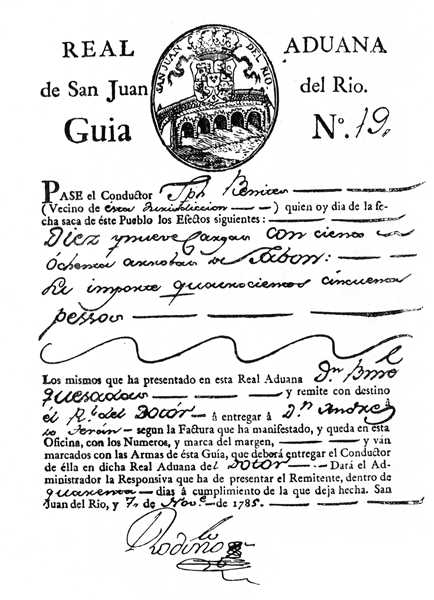 REAL ADUANA
SAN JUAN DEL RIO
de San Juan del Rio.
Guia N.º 19.
PASE el Conductor Jph Benites
(Vecino de esta Jurisdiccion) quien oy dia de la fe-
cha saca de éste Pueblo los Efectos siguientes:
Diez y nueve Cargas con ciento
Ochenta arrobas de Jabon:
Su importe quatrocientos cincuenta
pessos
Los mismos que ha presentado en esta Real Aduana Dn
Quesadas y remite con destino
él Rl. del Dotór á entregar á Dn. Andres
Terán segun la Factura que ha manifestado, y queda en esta
Oficina, con los Numeros, y marca del margen, y ván
marcados con las Armas de ésta Guía, que deberá entregar el Conductor
de élla en dicha Real Aduana del Dotór Dará el Ad-
ministrador la Responsiva que ha de presentar el Remitente, dentro de
quarenta dias á cumplimiento de la que deja hecha. San
Juan del Rio, y 7, de Nove. de 1785.